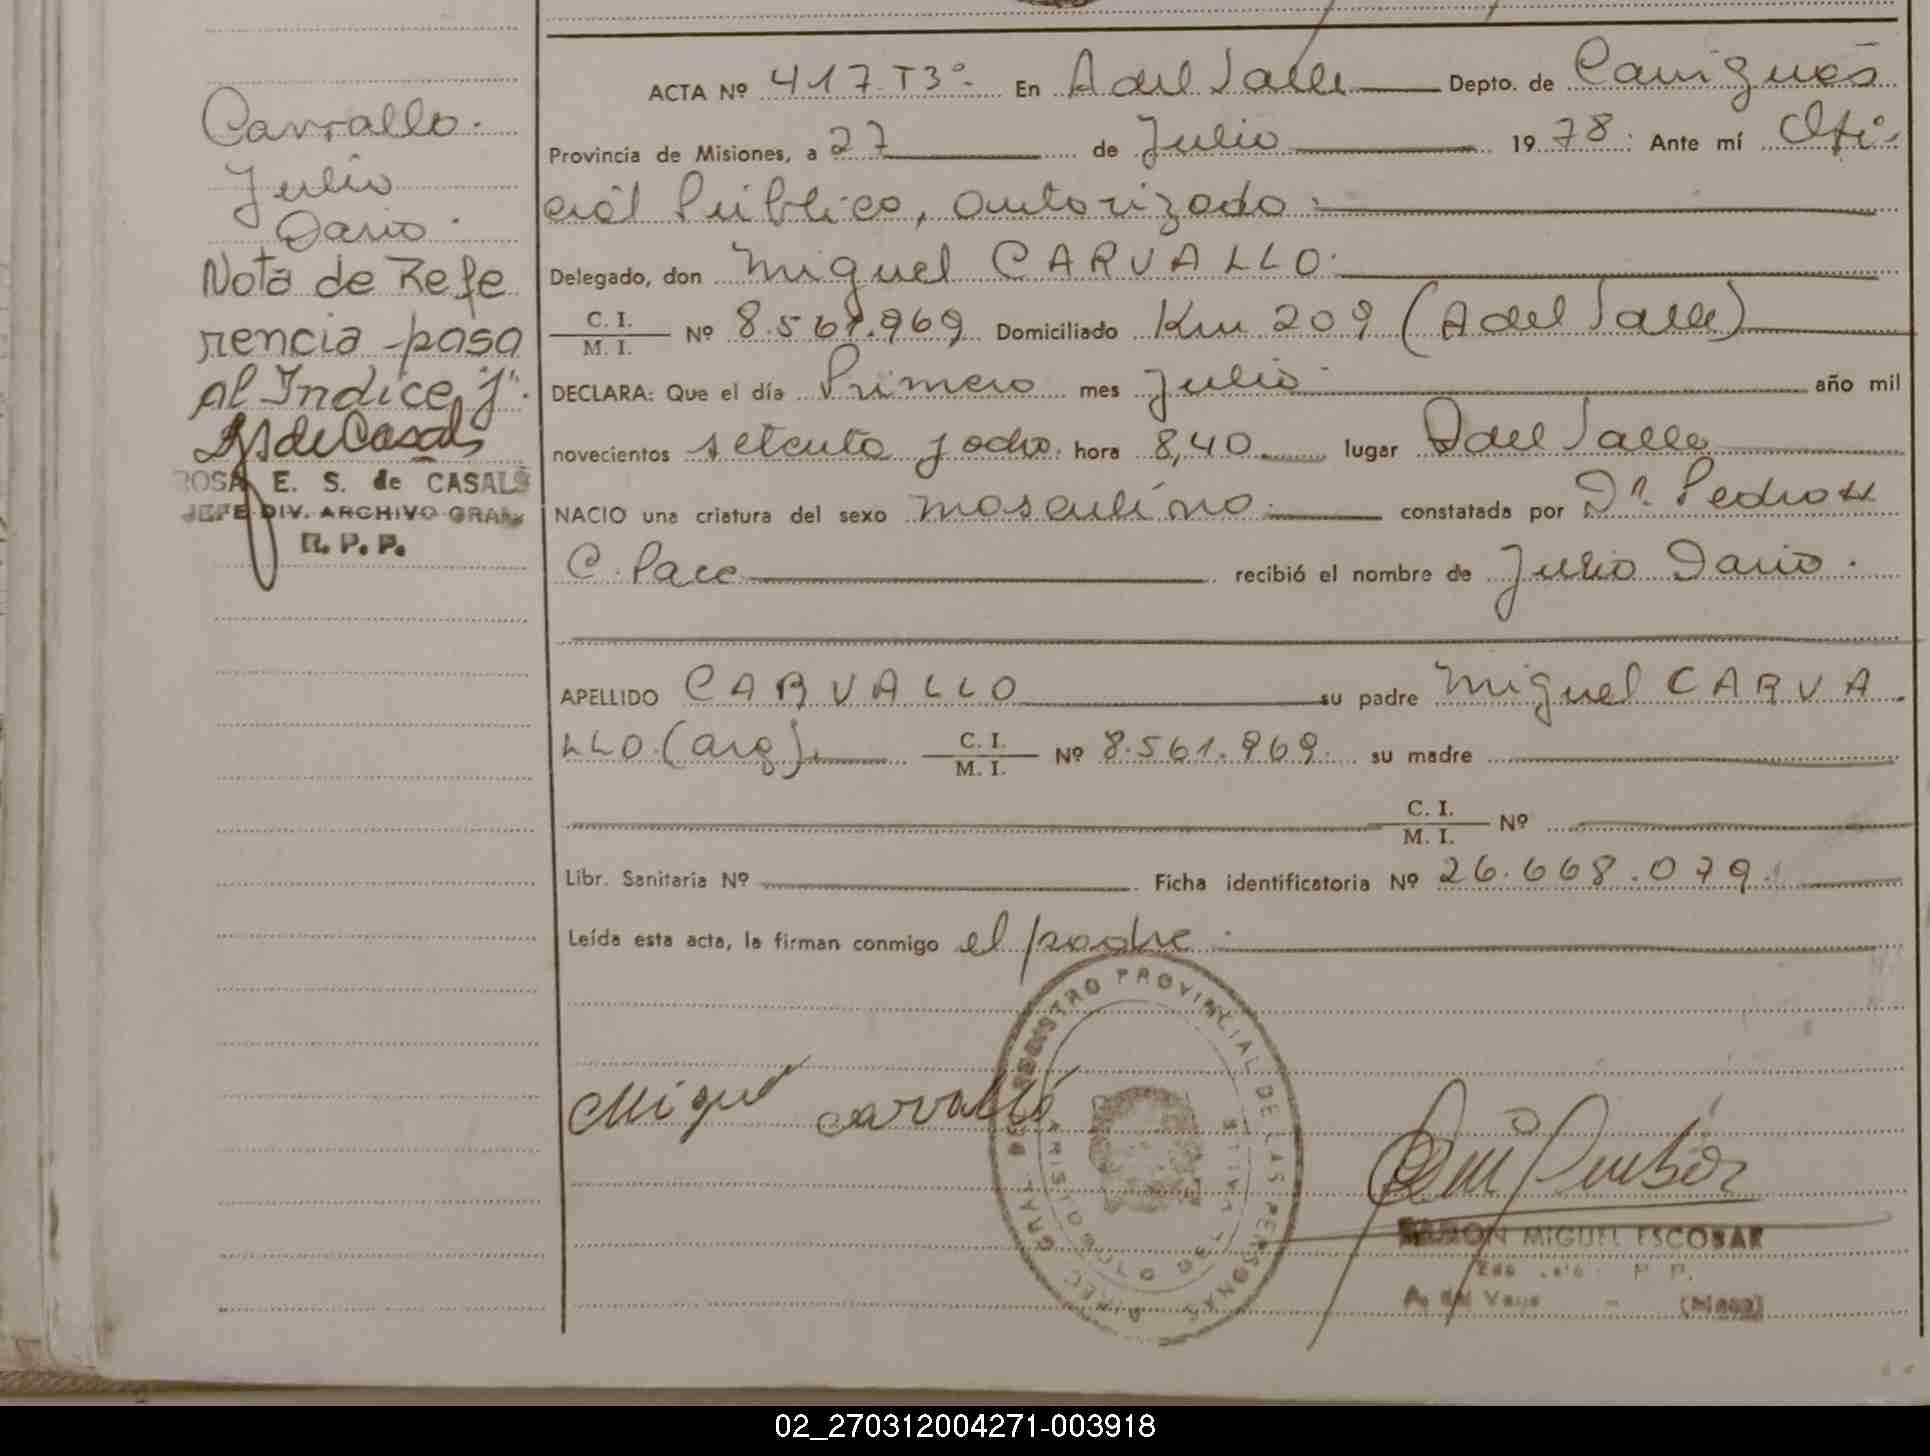 Carvallo.
Julio
Dario.
Nota de Refe
rencia pasa
Al Indice "J".
ROSA E. S. de CASALS
JEFE DIV. ARCHIVO GRAL
R. P. P.
ACTA Nº 417 T3º. En A del Valle Depto. de Cainguas
Provincia de Misiones, a 27 de Julio 1978. Ante mí Ofi-
cial Público, autorizado.
Delegado, don Miguel CARVALLO.
C. I. / M. I. Nº 8.561.969 Domiciliado Km 209 (A del Valle)
DECLARA: Que el día Primero mes Julio año mil
novecientos setenta y ocho. hora 8,40 lugar A del Valle
NACIO una criatura del sexo masculino. constatada por Dr. Pedro
C. Pace recibió el nombre de Julio Dario.
APELLIDO CARVALLO su padre Miguel CARVA
LLO. (arg). C. I. / M. I. Nº 8.561.969. su madre
C. I. / M. I. Nº
Libr. Sanitaria Nº Ficha identificatoria Nº 26.668.079.
Leída esta acta, la firman conmigo el padre.
REGISTRO PROVINCIAL DE LAS PERSONAS
Miguel Carvallo
RAMON MIGUEL ESCOBAR
A. del Valle - (Mnes)
02_270312004271-003918